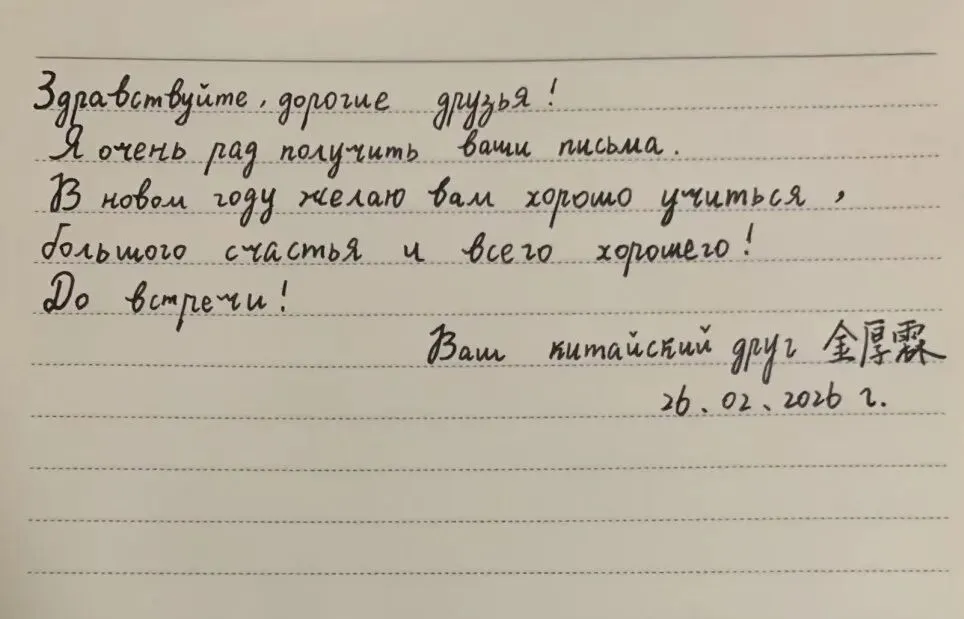 Здравствуйте, дорогие друзья!
Я очень рад получить ваши письма.
В новом году желаю вам хорошо учиться,
большого счастья и всего хорошего!
До встречи!
Ваш китайский друг 金厚霖
26.02.2026 г.